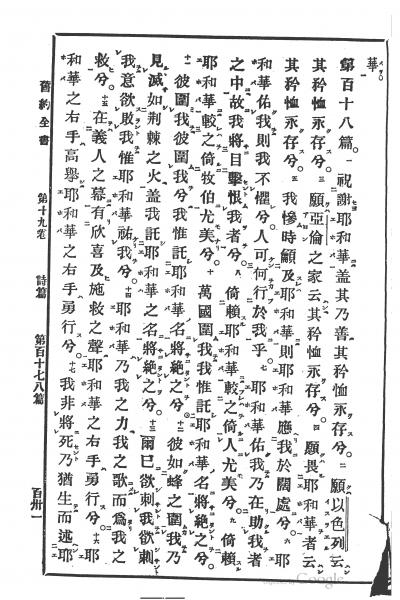 華
第百十八篇。一 祝謝耶和華盖其乃善其矜恤永存兮。二 願以色列云
其矜恤永存兮。三 願亞倫之家云其矜恤永存兮。四 願畏耶和華者云
其矜恤永存兮。五 我慘時籲及耶和華則耶和華應我於闊處兮。六 耶
和華佑我則我不懼兮。人可何行於我乎。七 耶和華佑我乃在助我者
之中故我將目擊恨我者兮。八 倚賴耶和華較之倚人尤美兮。九 倚賴
耶和華較之倚牧伯尤美兮。十 萬國圍我我惟託耶和華名將絶之兮。
十一 彼圍我彼圍我兮我惟託耶和華之名將絶之兮。十二 彼如蜂之圍我乃
見滅如荆棘之火盖我託耶和華之名將絶之兮。十三 爾已欲刺我欲刺
我意欲敗我惟耶和華祐我兮。十四 耶和華乃我之力我之歌而爲我之
救兮。十五 在義人之幕有欣喜及施救之聲耶和華之右手勇行兮。十六 耶
和華之右手高擧耶和華之右手勇行兮。十七 我非將死乃猶生而述耶
舊約全書 第十九卷 詩篇 第百十七八篇 百卅一
Google